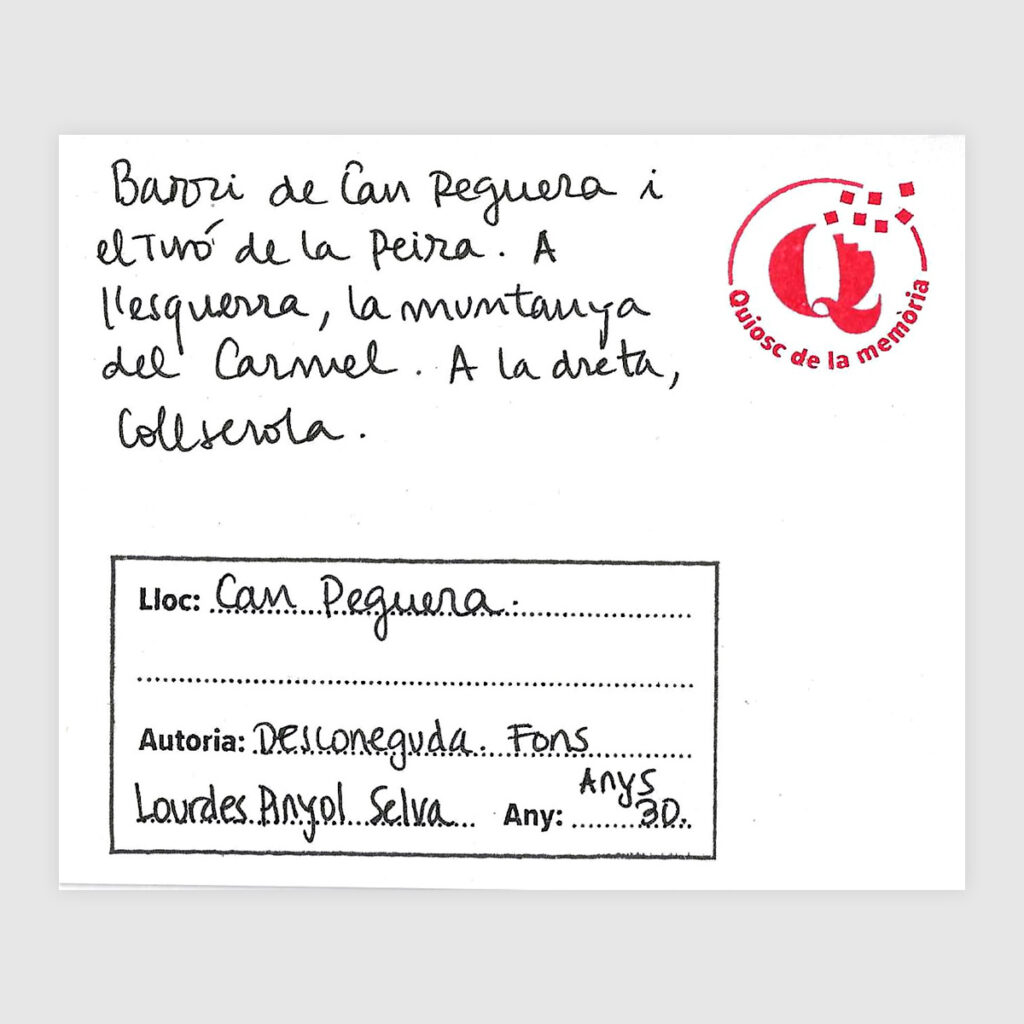 Barri de Can Peguera i
el Turó de la Peira. A
l'esquerra, la muntanya
del Carmel. A la dreta,
Collserola.
Q
Quiosc de la memòria
Lloc: Can Peguera.
Autoria: Desconeguda. Fons
Lourdes Pinyol Selva Any: Anys 30.